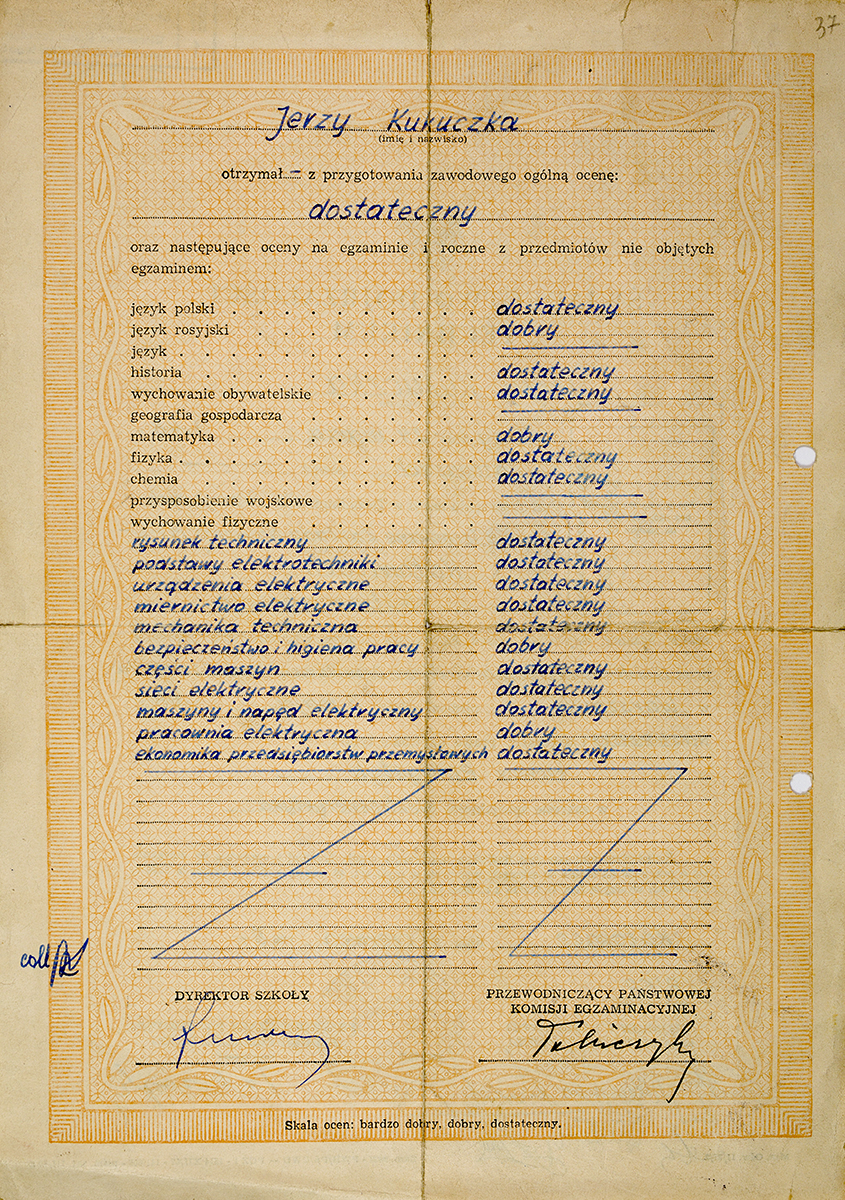 37
Jerzy Kukuczka
(imię i nazwisko)
otrzymał – z przygotowania zawodowego ogólną ocenę:
dostateczny
oraz następujące oceny na egzaminie i roczne z przedmiotów nie objętych
egzaminem:
język polski . . . . . . . . . . dostateczny
język rosyjski . . . . . . . . . dobry
język . . . . . . . . . . . .
historia . . . . . . . . . . . dostateczny
wychowanie obywatelskie . . . . . . . dostateczny
geografia gospodarcza . . . . . . .
matematyka . . . . . . . . . . dobry
fizyka . . . . . . . . . . . . dostateczny
chemia . . . . . . . . . . . dostateczny
przysposobienie wojskowe . . . . . .
wychowanie fizyczne . . . . . . .
rysunek techniczny dostateczny
podstawy elektrotechniki dostateczny
urządzenia elektryczne dostateczny
miernictwo elektryczne dostateczny
mechanika techniczna dostateczny
bezpieczeństwo i higiena pracy dobry
części maszyn dostateczny
sieci elektryczne dostateczny
maszyny i napęd elektryczny dostateczny
pracownia elektryczna dobry
ekonomika przedsiębiorstw przemysłowych dostateczny
DYREKTOR SZKOŁY
PRZEWODNICZĄCY PAŃSTWOWEJ
KOMISJI EGZAMINACYJNEJ
Skala ocen: bardzo dobry, dobry, dostateczny.